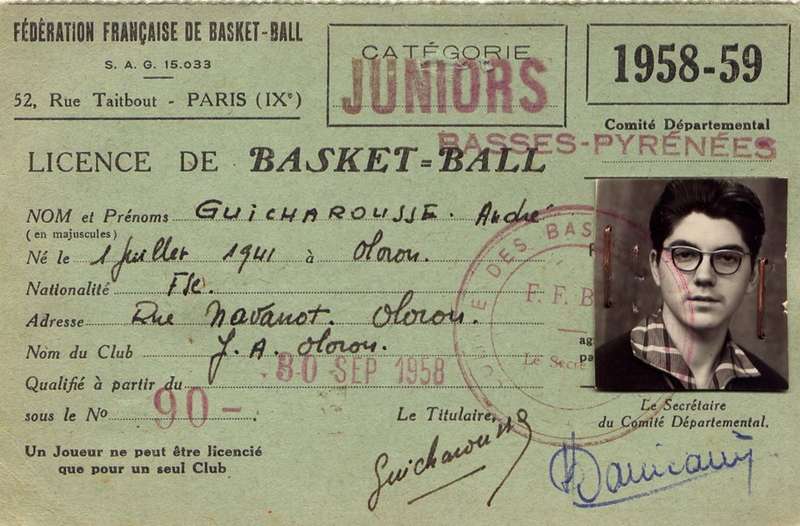 FÉDÉRATION FRANÇAISE DE BASKET-BALL
S. A. G. 15.033
52, Rue Taitbout - PARIS (IXe)
CATÉGORIE
JUNIORS
1958-59
Comité Départemental
BASSES-PYRÉNÉES
LICENCE DE BASKET=BALL
NOM et Prénoms GUICHAROUSSE. André
(en majuscules)
Né le 1 juillet 1941 à Oloron.
Nationalité Fse.
Adresse Rue Navarrot. Oloron.
Nom du Club J. A. Oloron.
Qualifié à partir du 30 SEP 1958
sous le No 90-
Un Joueur ne peut être licencié
que pour un seul Club
Le Titulaire,
Guicharousse
DES BAS
F. F. B
Le Secré
Le Secrétaire
du Comité Départemental.